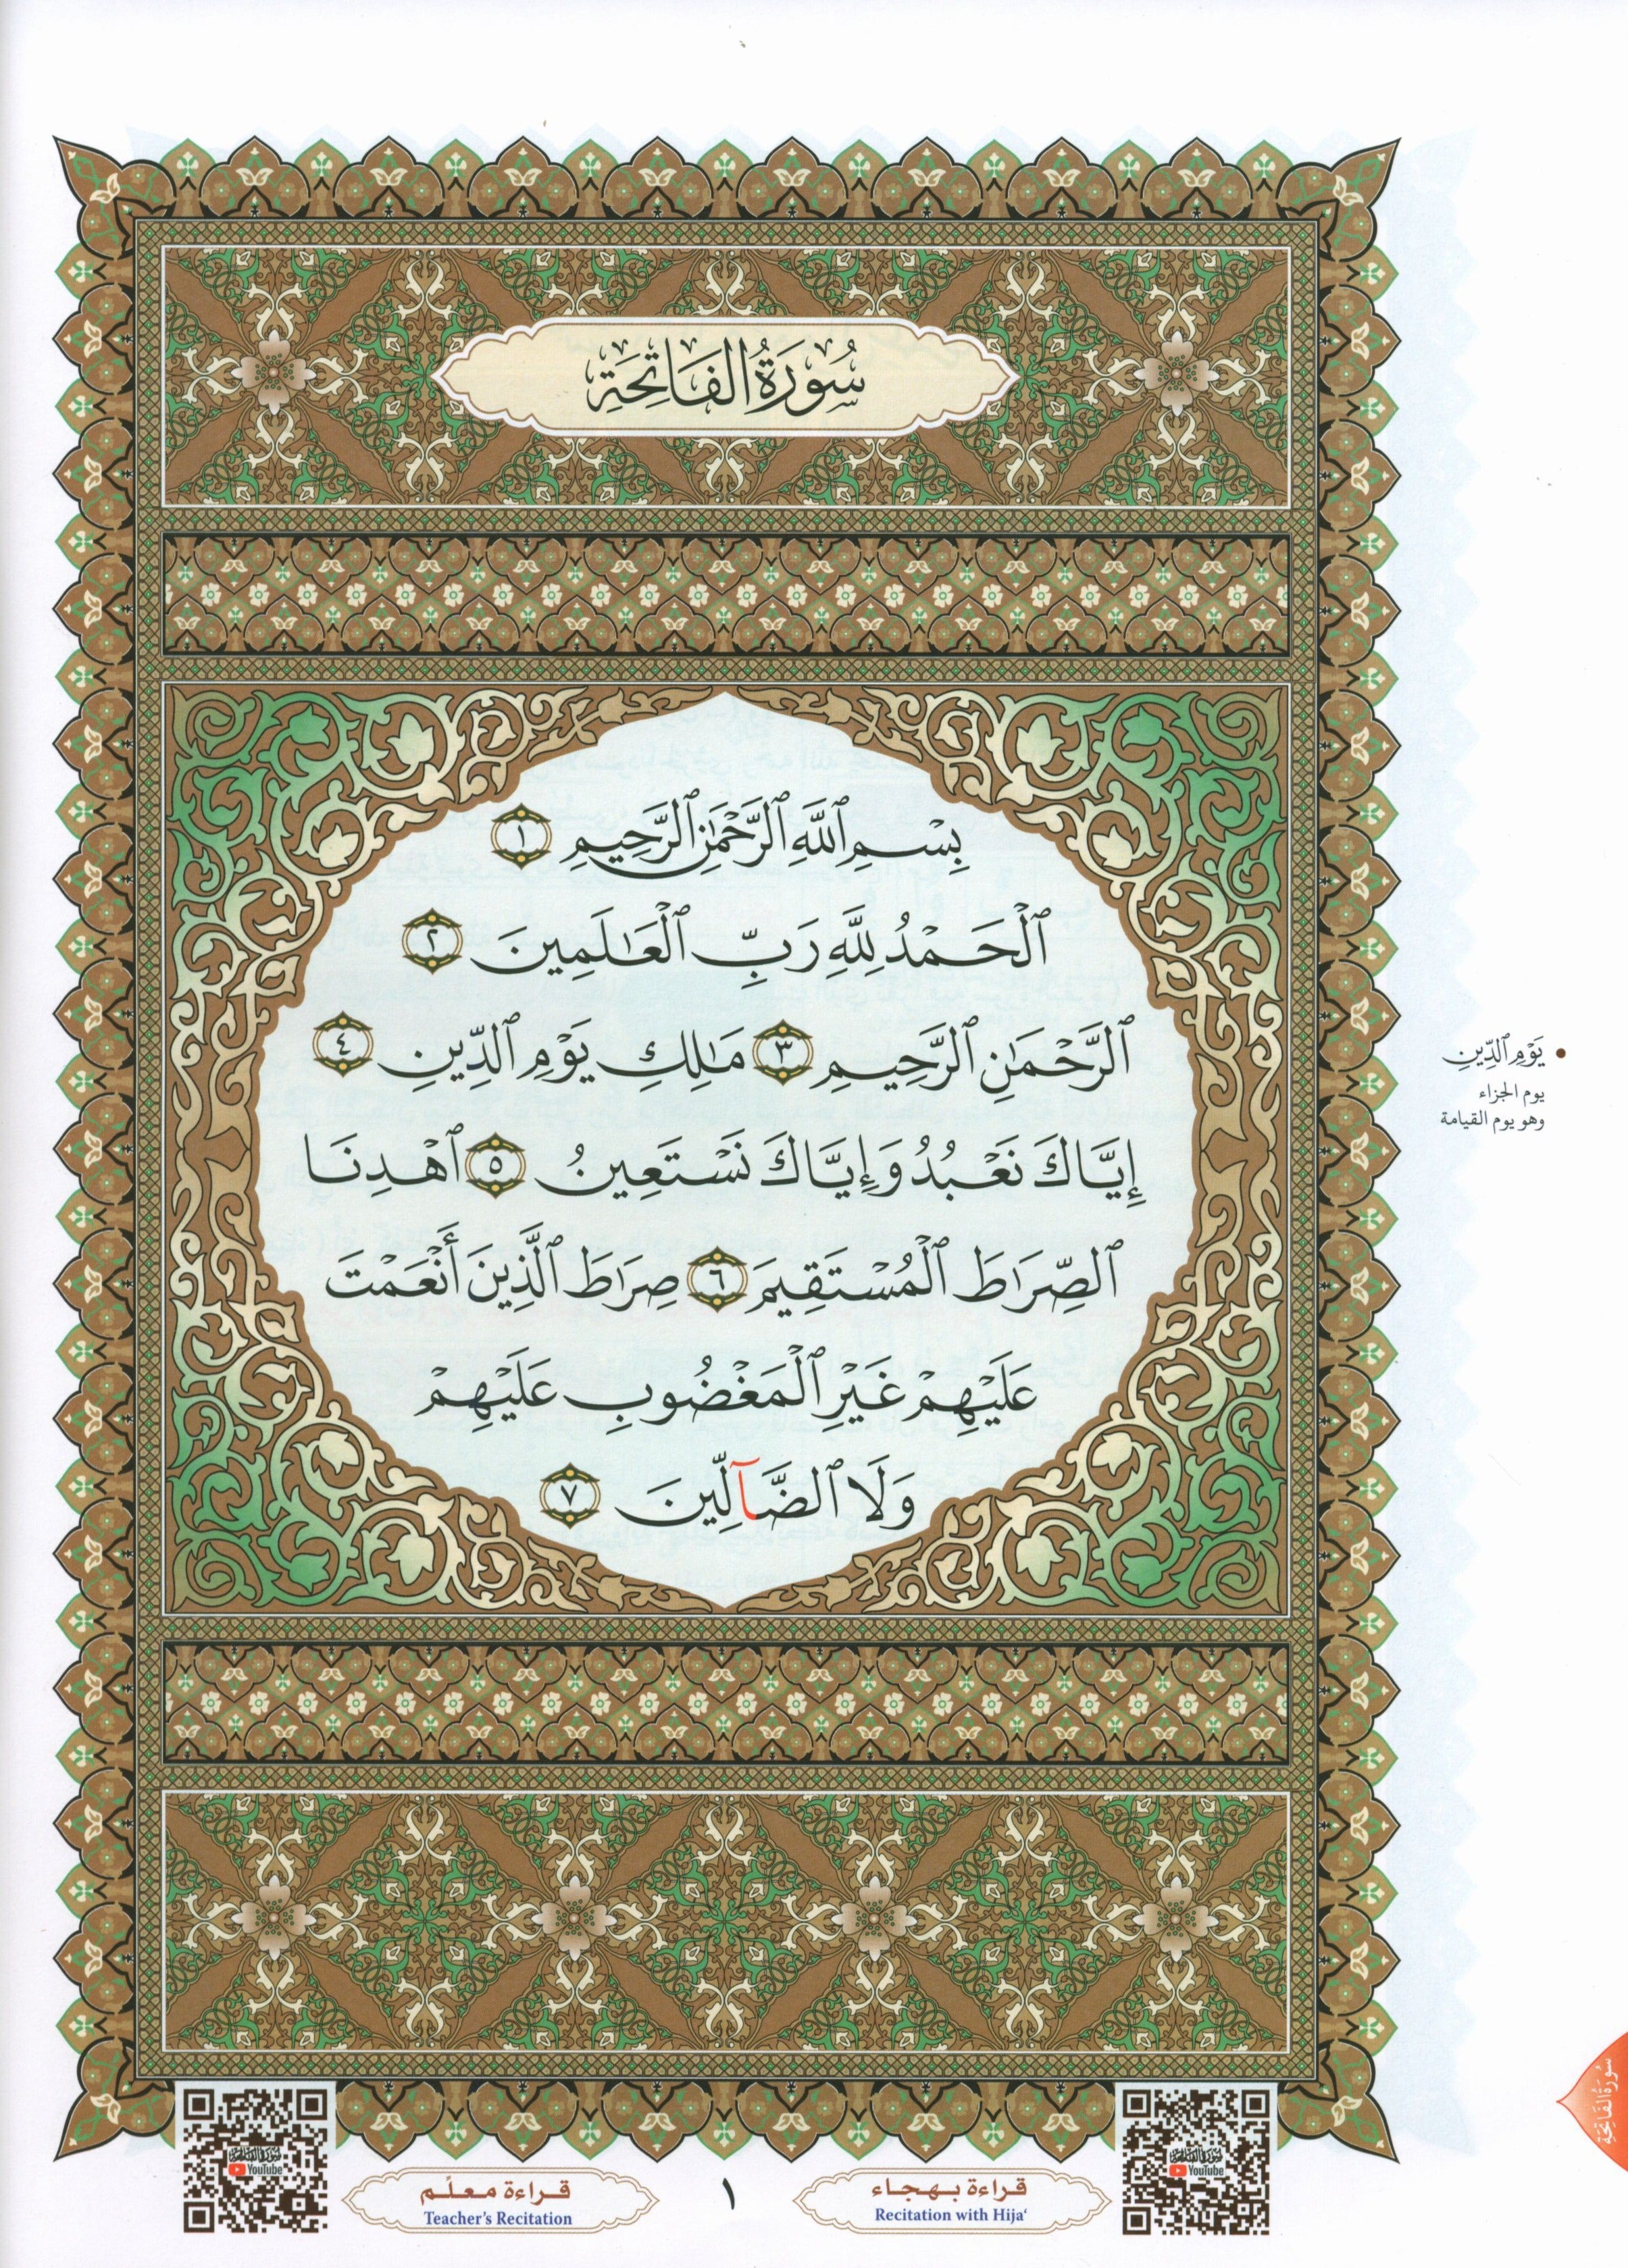 سُورَةُ الفَاتِحَةِ
بِسْمِ ٱللَّهِ ٱلرَّحْمَٰنِ ٱلرَّحِيمِ ١
ٱلْحَمْدُ لِلَّهِ رَبِّ ٱلْعَٰلَمِينَ ٢
ٱلرَّحْمَٰنِ ٱلرَّحِيمِ ٣ مَٰلِكِ يَوْمِ ٱلدِّينِ ٤
إِيَّاكَ نَعْبُدُ وَإِيَّاكَ نَسْتَعِينُ ٥ ٱهْدِنَا
ٱلصِّرَٰطَ ٱلْمُسْتَقِيمَ ٦ صِرَٰطَ ٱلَّذِينَ أَنْعَمْتَ
عَلَيْهِمْ غَيْرِ ٱلْمَغْضُوبِ عَلَيْهِمْ
وَلَا ٱلضَّآلِّينَ ٧
يَوْمِ ٱلدِّينِ
يوم الجزاء
وهو يوم القيامة
سُورَةُ الفَاتِحَةِ
سورة الفاتحة
YouTube
قراءة بهجاء
Recitation with Hija'
١
قراءة معلّم
Teacher's Recitation
سورة الفاتحة
YouTube